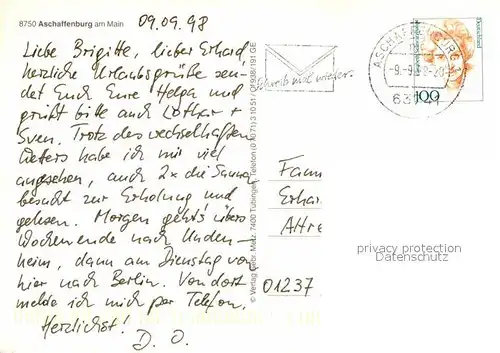 8750 Aschaffenburg am Main
09.09.98
Liebe Brigitte, lieber Erhard,
herzliche Urlaubsgrüße sen-
det Euch Eure Helga und
grüßt bitte auch Lothar +
Sven. Trotz des wechselhaften
Wetters habe ich mir viel
angesehen, auch 2x die Sauna
besucht zur Erholung und
gelesen. Morgen geht's übers
Wochenende nach Unden-
heim, dann am Dienstag von
hier nach Berlin. Von dort
melde ich mich per Telefon.
Herzlichst! D. O.
© Verlag Gebr. Metz, 7400 Tübingen, Telefon (0 70 71)
Schreib mal wieder.
ASCHAFFENBURG
-9.-9.98-20
63
100
Deutschland
Fam
Erhar
Altre
01237
privacy protection
Datenschutz